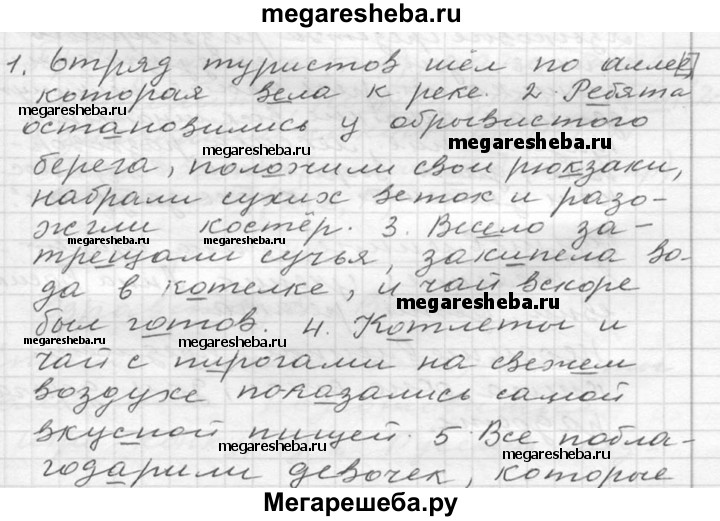 megaresheba.ru
1. Отряд туристов шёл по аллее,
которая вела к реке. 2. Ребята
остановились у обрывистого
megaresheba.ru
megaresheba.ru
берега, положили свои рюкзаки,
набрали сухих веток и разо-
жгли костёр. 3. Весело за-
megaresheba.ru
megaresheba.ru
трещали сучья, закипела во-
да в котелке, и чай вскоре
megaresheba.ru
был готов. 4. Котлеты и
megaresheba.ru
megaresheba.ru
чай с пирогами на свежем
воздухе показались самой
вкусной пищей. 5. Все побла-
megaresheba.ru
megaresheba.ru
годарили девочек, которые
Мегарешеба.ру